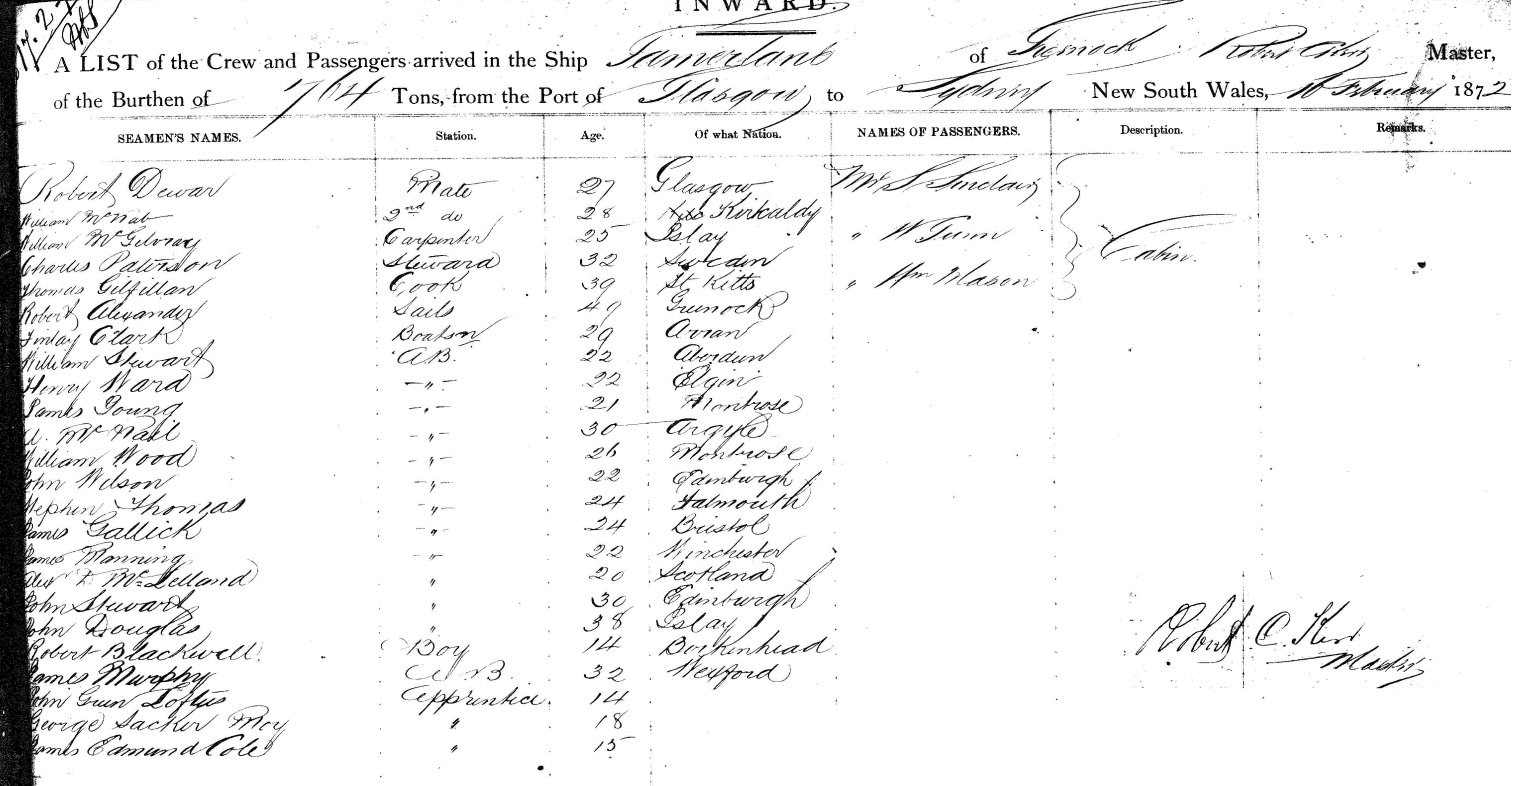 INWARD.
A LIST of the Crew and Passengers arrived in the Ship Tamerlane of Greenock Robert Master,
of the Burthen of 764 Tons, from the Port of Glasgow to Sydney New South Wales, 16 February 1872
SEAMEN'S NAMES. Station. Age. Of what Nation. NAMES OF PASSENGERS. Description. Remarks.
Robert Dewar Mate 27 Glasgow Mr S Sinclair
William McNab 2nd do 28 Kirkaldy " W Tunn
William McGilvray Carpenter 25 Islay Cabin.
Charles Paterson Steward 32 Sweden " Wm Mason
Thomas Gilfillan Cook 39 St Kitts
Robert Alexander Sails 49 Greenock
Finlay Clark Boatsn 29 Arran
William Stewart A.B. 22 Aberdeen
Henry Ward " 22 Elgin
James Young " 21 Montrose
A. McNail " 30 Argyle
William Wood " 26 Montrose
John Wilson " 22 Edinburgh
Stephen Thomas " 24 Falmouth
James Gallick " 24 Bristol
James Manning " 22 Winchester
Alex McLelland " 20 Scotland
John Stewart " 30 Edinburgh
John Douglas " 38 Islay
Robert Blackwell. Boy 14 Birkinhead
James Murphy A B. 32 Wexford
Robert C. Kerr
Master
John Green Loftus Apprentice. 14
George Sacker Moy " 18
James Edmund Cole " 15